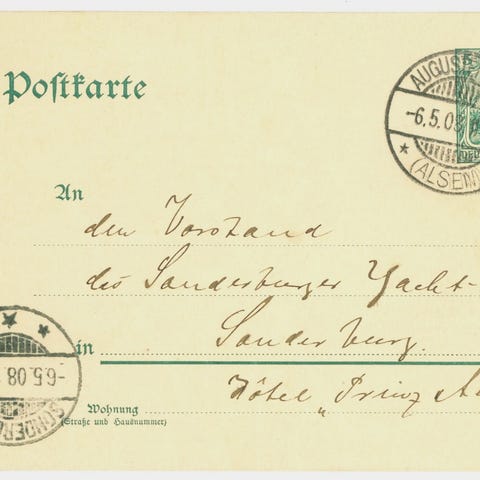 Postkarte
AUGUST
-6.5.08
(ALSEN)
An
den Vorstand
des Sonderburger Yacht-
in Sonderburg.
Hôtel „Prinz
-6.5.08
SONDER
Wohnung
(Straße und Hausnummer)